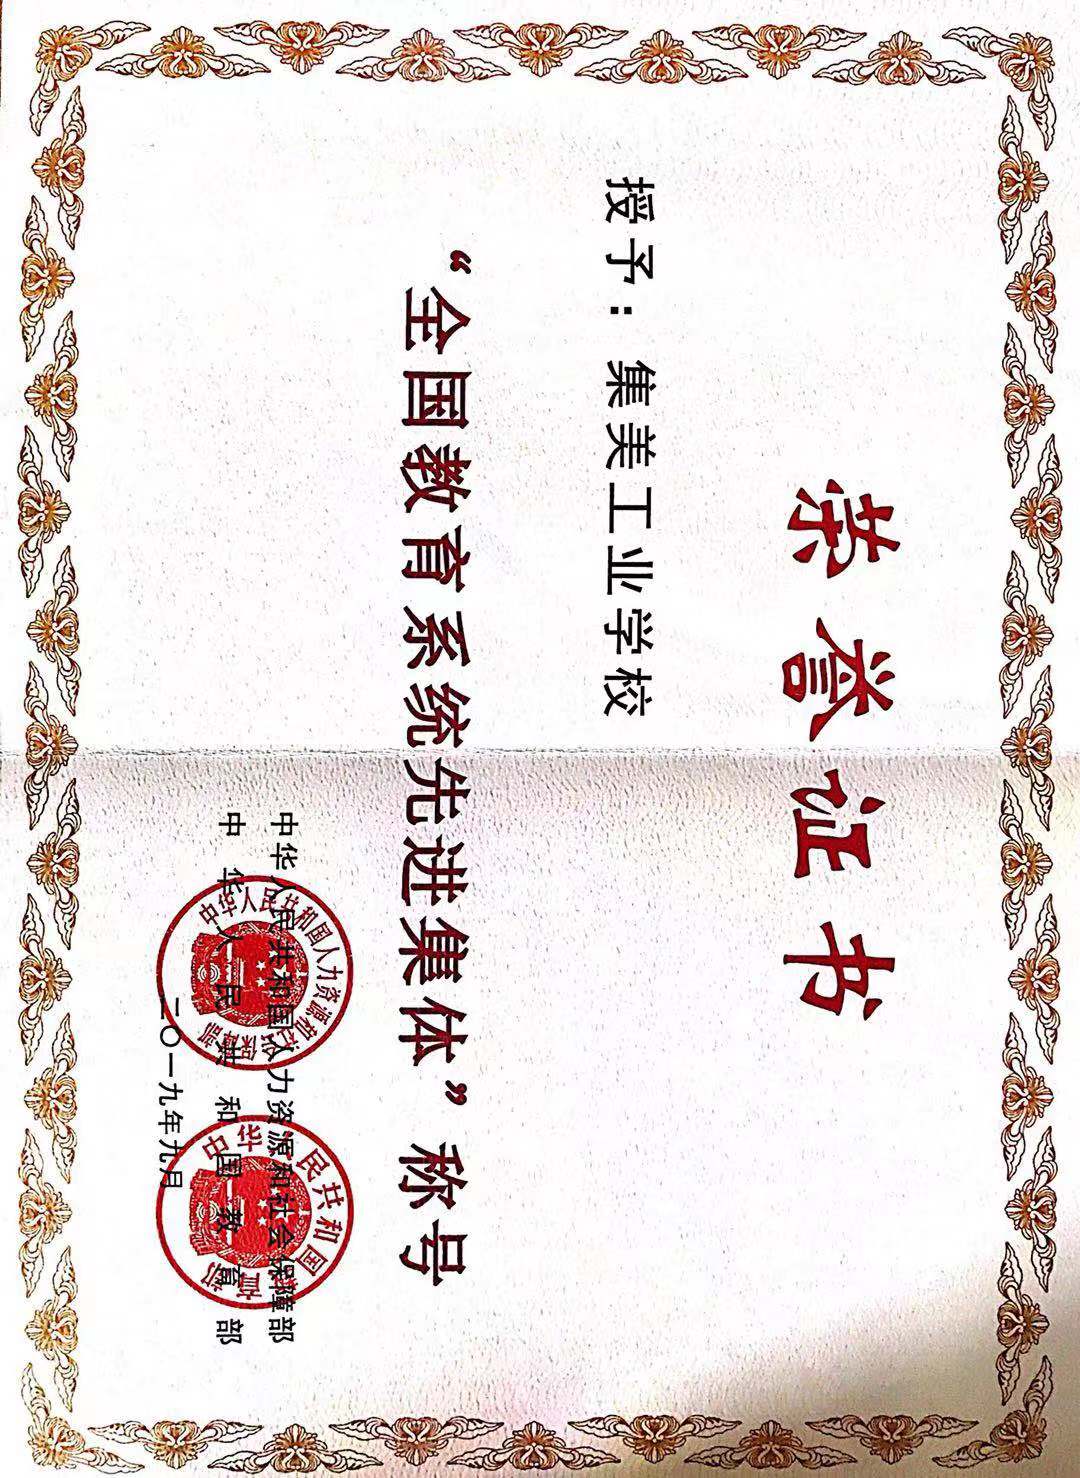 荣誉证书
授予：集美工业学校
“全国教育系统先进集体”称号
中华人民共和国人力资源和社会保障部
中华人民共和国教育部
二〇一九年九月
中华人民共和国人力资源和社会保障部
中华人民共和国教育部